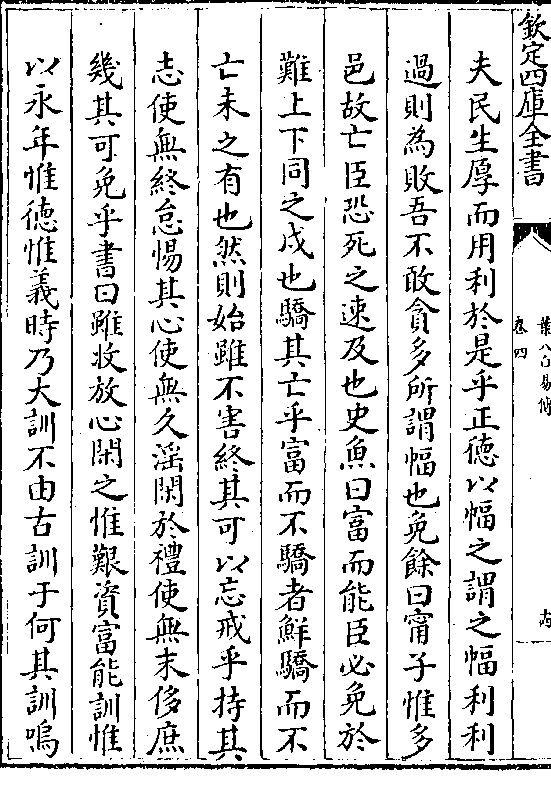 欽定四庫全書
葉八白易傳
卷四
夫民生厚而用利於是乎正德以幅之謂之幅利利
過則為敗吾不敢貪多所謂幅也免餘曰甯子惟多
邑故亡臣恐死之速及也史魚曰富而能臣必免於
難上下同之戍也驕其亡乎富而不驕者鮮驕而不
亡未之有也然則始雖不害終其可以忘戒乎持其
志使無終怠惕其心使無久淫閑於禮使無末侈庶
幾其可免乎書曰雖收放心閑之惟艱資富能訓惟
以永年惟德惟義時乃大訓不由古訓于何其訓嗚